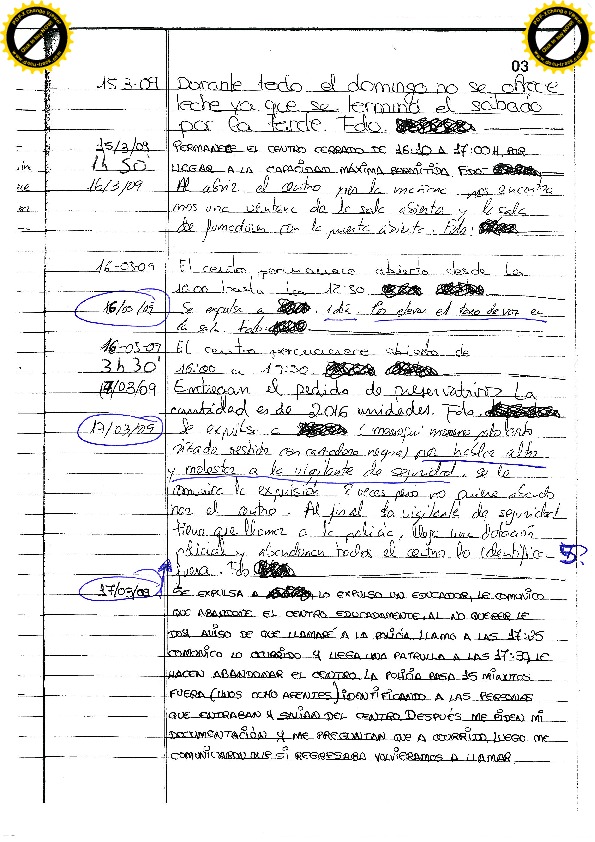 03
15-3-09 Durante todo el domingo no se ofrece
leche ya que se terminó el sábado
por la tarde. Fdo.
15/3/09 PERMANECE EL CENTRO CERRADO DE 16:10 A 17:00H, POR
1h 50' LLEGAR A LA CAPACIDAD MÁXIMA PERMITIDA FDO:
16/3/09 Al abrir el centro por la mañana nos encontra
mos una ventana de la sala abierta y la sala
de fumadores con la puerta abierta. Fdo:
16-03-09 El centro permanece abierto desde las
hasta las 12:30
16/03/09 Se expulsa a 1 día. Por elevar el tono de voz en
la sala. Fdo:
16-03-09 El centro permanece abierto de
3h 30' 16:00 a 19:30
17/03/09 Entregan el pedido de preservativos La
cantidad es de 2016 unidades. Fdo.
17/03/09 Se expulsa a (
vestido con negra) por hablar alto
y molestar a la vigilante de seguridad, se le
comunica la expulsión 2 veces pero no quiere
el centro. Al final la vigilante de seguridad
tiene que llamar a la policía, llega una dotación
policial y abandonan todos el centro lo identifica
5?
fuera. Fdo
17/03/09 SE EXPULSA A LO EXPULSO UN EDUCADOR, LE COMUNICO
QUE ABANDONE EL CENTRO EDUCADAMENTE, AL NO QUERER LE
DOY AVISO DE QUE LLAMARÉ A LA POLICÍA, LLAMO A LAS 17:25
COMUNICO LO OCURRIDO Y LLEGA UNA PATRULLA A LAS 17:37, LE
HACEN ABANDONAR EL CENTRO. LA POLICÍA PASA 15 MINUTOS
FUERA (UNOS OCHO AGENTES) IDENTIFICANDO A LAS PERSONAS
QUE ENTRABAN Y SALÍAN DEL CENTRO. DESPUÉS ME PIDEN MI
DOCUMENTACIÓN Y ME PREGUNTAN QUE A OCURRIDO, LUEGO ME
COMUNICARON QUE SI REGRESABA VOLVIERAMOS A LLAMAR